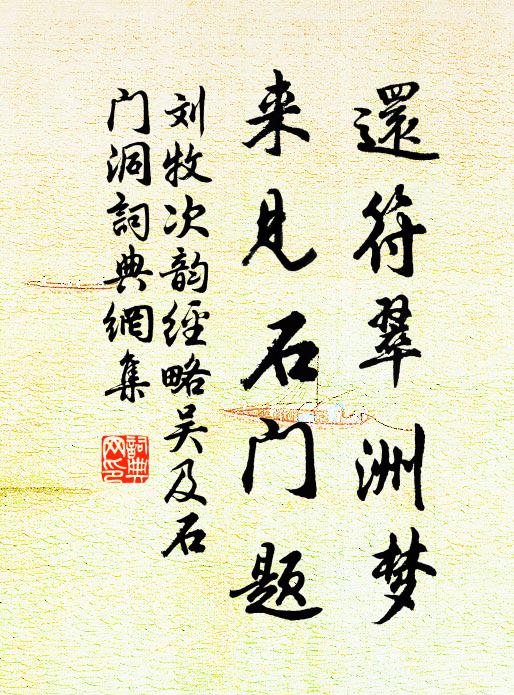 還符翠洲梦
来見石门题
刘牧次韵经略吴及石
门洞詞典網集
詞典
网印